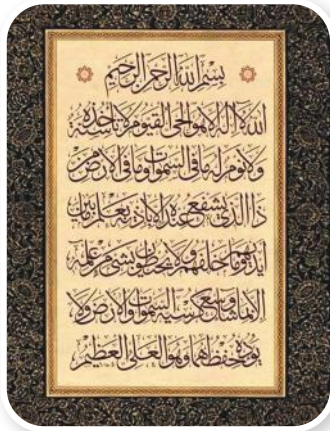 بسم الله الرحمن الرحيم
الله لا إله إلا هو الحي القيوم لا تأخذه سنة
ولا نوم له ما في السموات وما في الأرض من
ذا الذي يشفع عنده إلا بإذنه يعلم ما بين
أيديهم وما خلفهم ولا يحيطون بشيء من علمه
إلا بما شاء وسع كرسيه السموات والأرض ولا
يؤده حفظهما وهو العلي العظيم